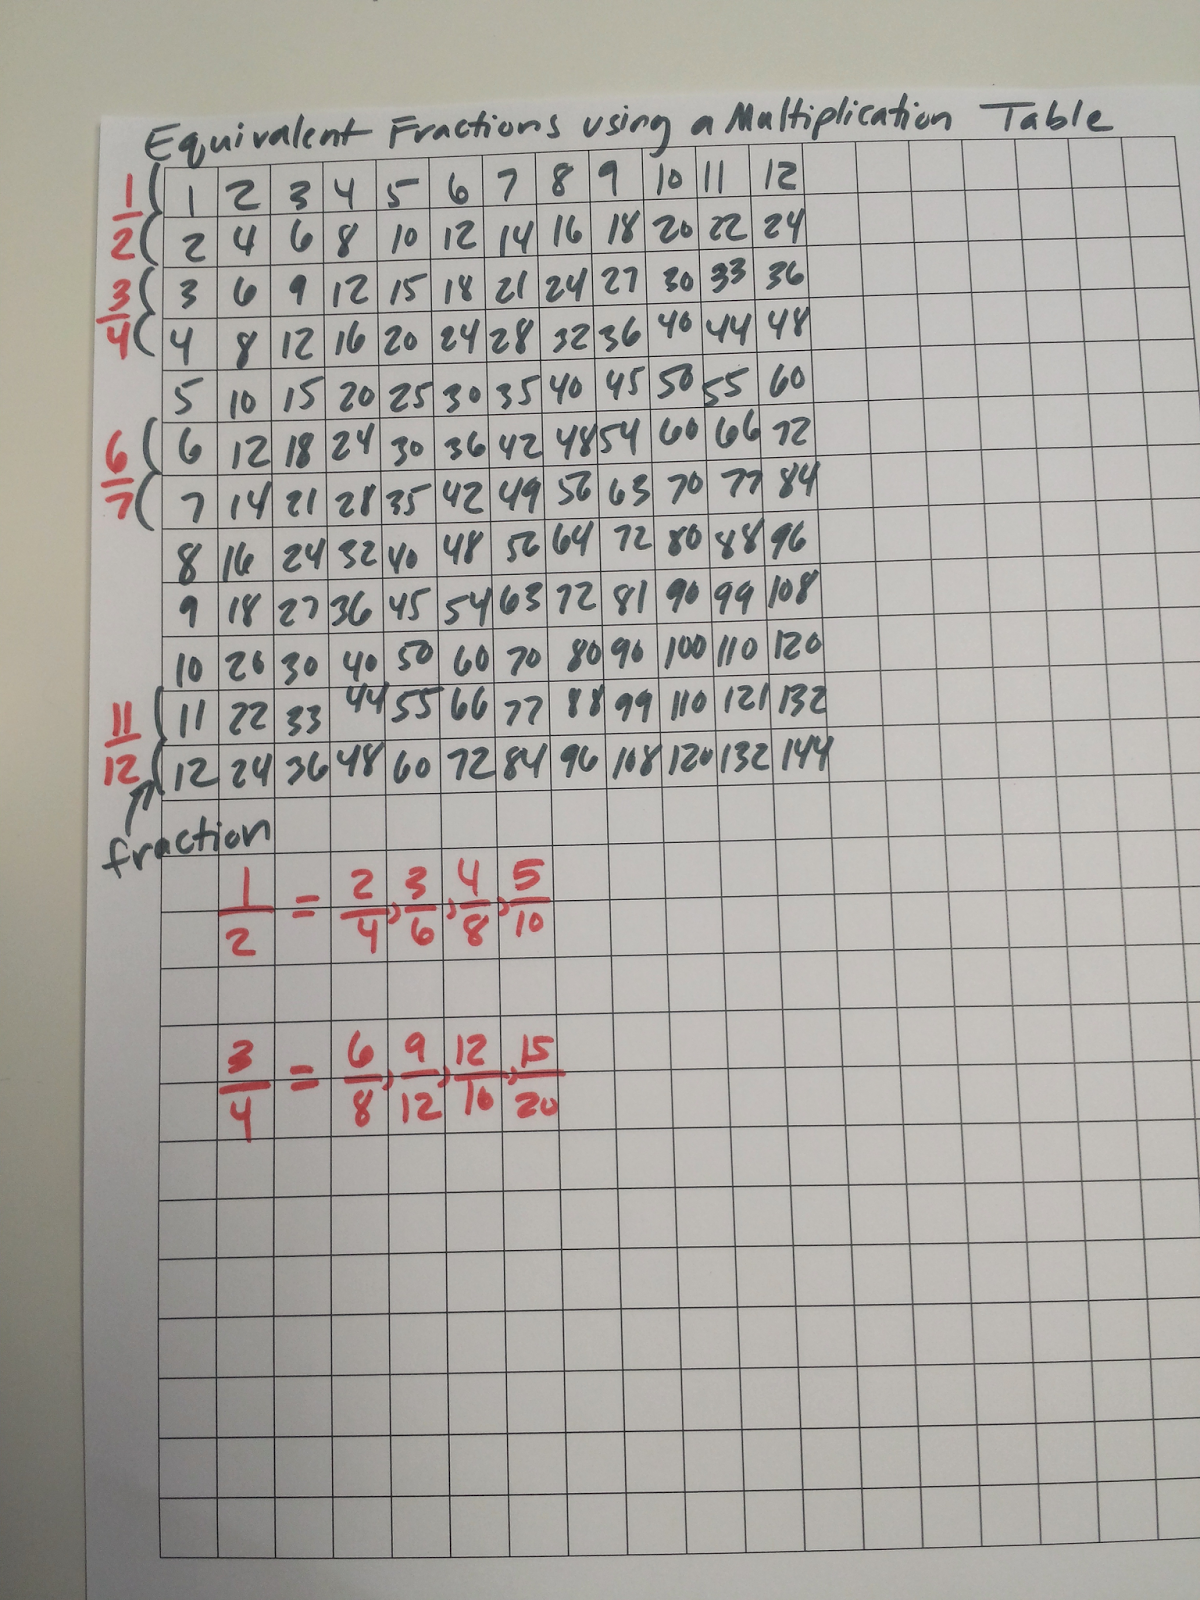 Equivalent Fractions using a Multiplication Table
1/2
1 2 3 4 5 6 7 8 9 10 11 12
2 4 6 8 10 12 14 16 18 20 22 24
3/4
3 6 9 12 15 18 21 24 27 30 33 36
4 8 12 16 20 24 28 32 36 40 44 48
5 10 15 20 25 30 35 40 45 50 55 60
6/7
6 12 18 24 30 36 42 48 54 60 66 72
7 14 21 28 35 42 49 56 63 70 77 84
8 16 24 32 40 48 56 64 72 80 88 96
9 18 27 36 45 54 63 72 81 90 99 108
10 20 30 40 50 60 70 80 90 100 110 120
11/12
11 22 33 44 55 66 77 88 99 110 121 132
12 24 36 48 60 72 84 96 108 120 132 144
fraction
1/2 = 2/4, 3/6, 4/8, 5/10
3/4 = 6/8, 9/12, 12/16, 15/20